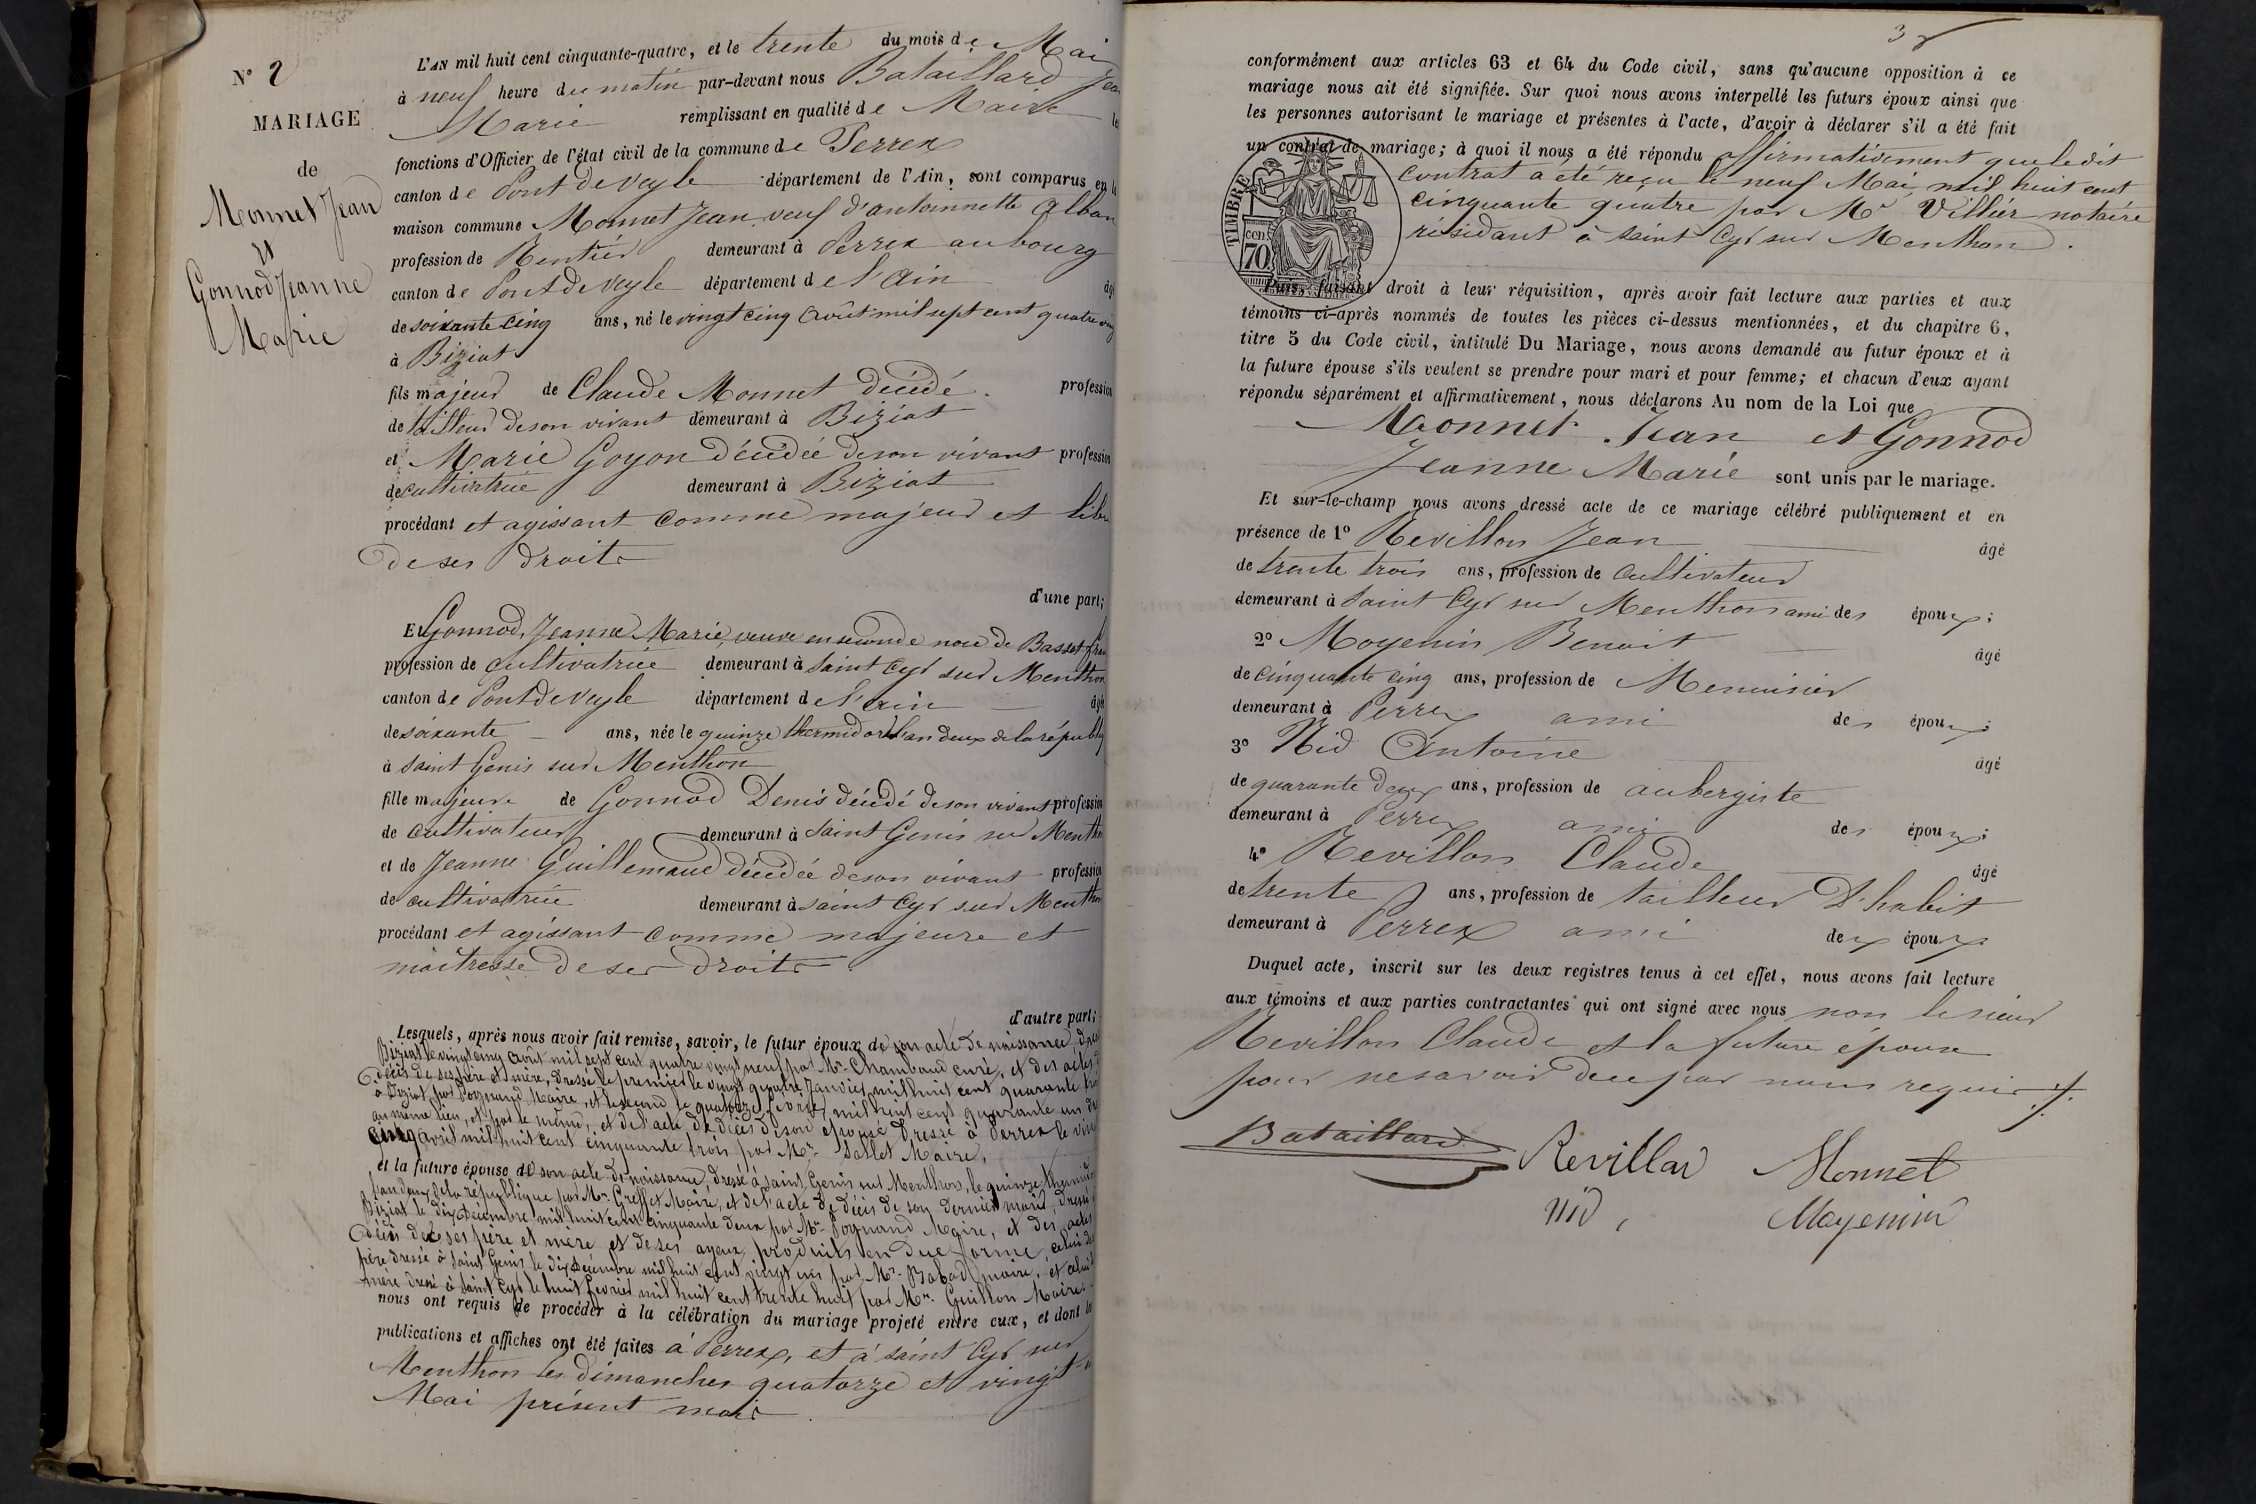 N° 2
MARIAGE
de
Monnet Jean
et
Gonnod Jeanne
Marie
L'AN mil huit cent cinquante-quatre, et le trente du mois de Mai
à neuf heure du matin par-devant nous Bataillard Jean
Marie remplissant en qualité de Maire les
fonctions d'Officier de l'état civil de la commune de Perrex
canton de Pont de Veyle département de l'Ain, sont comparus en la
maison commune Monnet Jean veuf d'antoinnette Alban
profession de Rentier demeurant à Perrex au bourg
canton de Pont de Veyle département de l'Ain âgé
de soixante cinq ans, né le vingt cinq Août mil sept cent quatre ving
à Biziat
fils majeur de Claude Monnet décédé profession
de tailleur de son vivant demeurant à Biziat
et Marie Goyon décédée de son vivant profession
de cultivatrice demeurant à Biziat
procédant et agissant comme majeur et libre
de ses droits
d'une part;
Et Gonnod Jeanne Marie, veuve en seconde noce de Basset
profession de cultivatrice demeurant à Saint Cyr sur Menthon
canton de Pont de Veyle département de l'ain âgée
de soixante ans, née le quinze thermidor l'an deux de la républ
à Saint Genis sur Menthon
fille majeure de Gonnod Denis décédé de son vivant profession
de cultivateur demeurant à Saint Genis sur Menthon
et de Jeanne Guillemaud décédée de son vivant profession
de cultivatrice demeurant à Saint Cyr sur Menthon
procédant et agissant comme majeure et
maîtresse de ses droits
d'autre part;
Lesquels, après nous avoir fait remise, savoir, le futur époux de son acte de naissance, dressé
Biziat le vingt cinq Août mil sept cent quatre vingt neuf par Mr. Chambaud curé, et des actes de
décès de ses père et mère, dressé le premier le vingt quatre Janvier mil huit cent quarante trois
à Biziat par Pognand Maire, et le second le quatorze février mil huit cent quarante un
au même lieu, et par le même, et de l'acte de décès de son épouse dressé à Perrex le vingt
cinq avril mil huit cent cinquante trois par Mr. Maire,
et la future épouse de son acte de naissance, dressé à Saint Genis sur Menthon, le quinze thermidor
l'an deux de la république par Mr. Greffet Maire, et de l'acte de décès de son dernier mari, dressé à
Biziat le dix décembre mil huit cent cinquante deux par Mr. Pognand Maire, et des actes
décès de ses père et mère et de ses ayeux, produits en due forme, celui de
père dressé à Saint Genis le dix décembre mil huit cent vingt un par Mr. maire, et celui de
mère dressé à Saint Cyr le huit février mil huit cent trente huit par Mr. Guillon Maire.
nous ont requis de procéder à la célébration du mariage projeté entre eux, et dont les
publications et affiches ont été faites à Perrex, et à Saint Cyr sur
Menthon les dimanches quatorze et vingt
Mai présent mois
conformément aux articles 63 et 64 du Code civil, sans qu'aucune opposition à ce
mariage nous ait été signifiée. Sur quoi nous avons interpellé les futurs époux ainsi que
les personnes autorisant le mariage et présentes à l'acte, d'avoir à déclarer s'il a été fait
un contrat de mariage; à quoi il nous a été répondu affirmativement que ledit
contrat a été reçu le neuf Mai mil huit cent
cinquante quatre par Mr Villier notaire
résidant à Saint Cyr sur Menthon.
TIMBRE
cen.
70
Puis, faisant droit à leur réquisition, après avoir fait lecture aux parties et aux
témoins ci-après nommés de toutes les pièces ci-dessus mentionnées, et du chapitre 6,
titre 5 du Code civil, intitulé Du Mariage, nous avons demandé au futur époux et à
la future épouse s'ils veulent se prendre pour mari et pour femme; et chacun d'eux ayant
répondu séparément et affirmativement, nous déclarons Au nom de la Loi que
Monnet Jean et Gonnod
Jeanne Marie sont unis par le mariage.
Et sur-le-champ nous avons dressé acte de ce mariage célébré publiquement et en
présence de 1° Revillon Jean âgé
de trente trois ans, profession de cultivateur
demeurant à Saint Cyr sur Menthon ami des époux;
2° Moyenin Benoit âgé
de cinquante cinq ans, profession de Menuisier
demeurant à Perrex ami des époux;
3° Nid Antoine âgé
de quarante deux ans, profession de aubergiste
demeurant à Perrex ami des époux;
4° Revillon Claude âgé
de trente ans, profession de tailleur d'habit
demeurant à Perrex ami des époux
Duquel acte, inscrit sur les deux registres tenus à cet effet, nous avons fait lecture
aux témoins et aux parties contractantes qui ont signé avec nous non le sieur
Revillon Claude et la future épouse
pour ne savoir de ce par nous requis ./.
Bataillard Revillon Monnet
nid, Moyenin